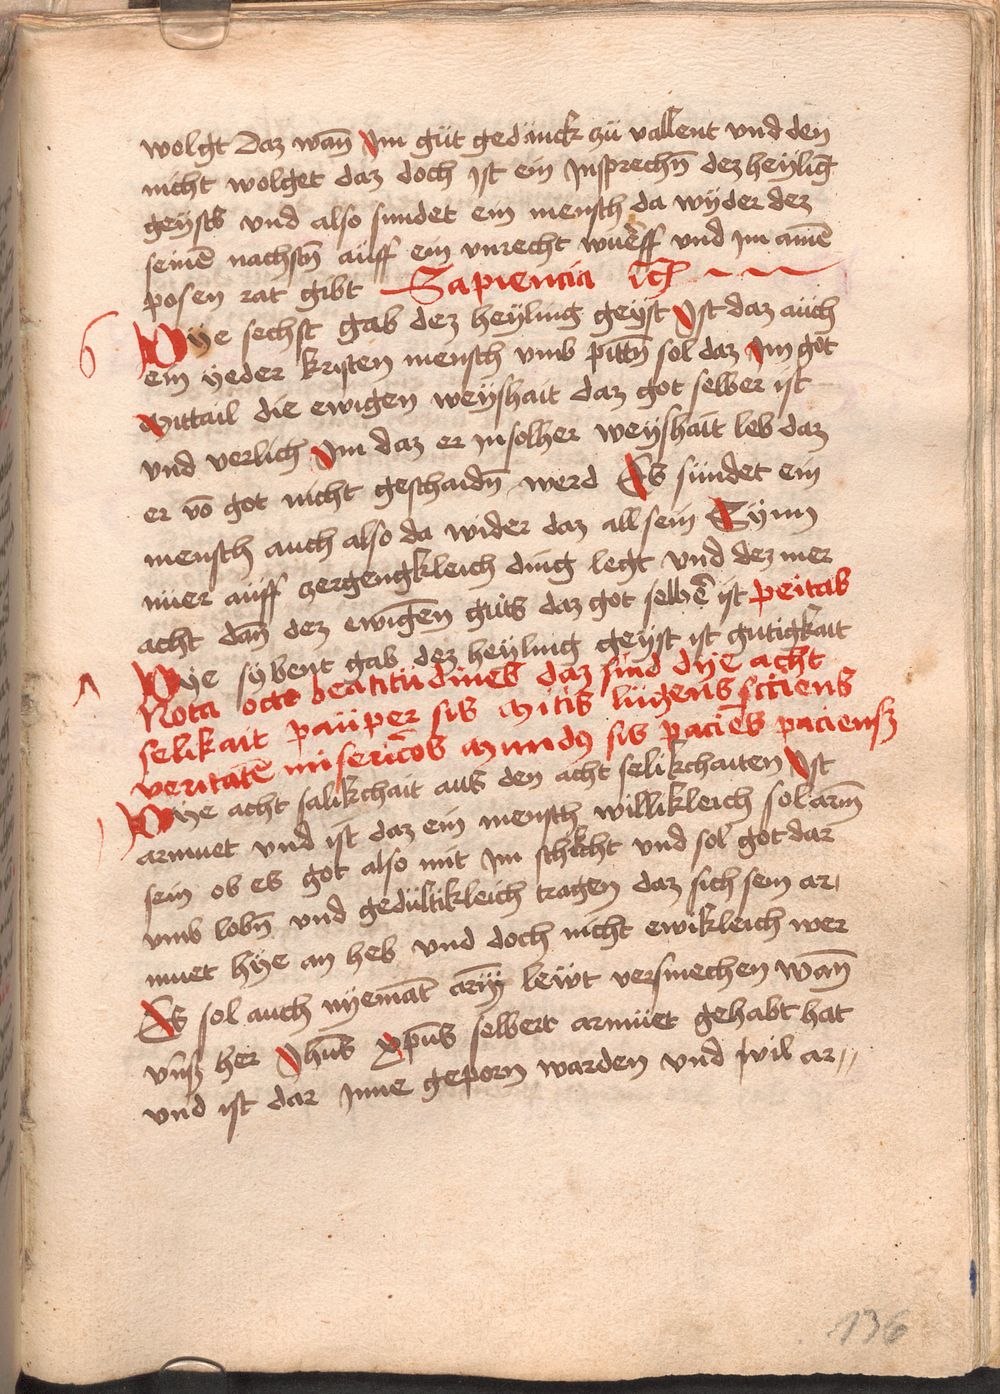 wolgt Daz wañ Im güt gedänck zü vallent vnd den
nicht wolget daz doch ist ein Insprechñ dez heylig̃
geysts vnd also sundet ein mensch da wÿder dez
seinē nachstñ aüff ein vnrecht wuerff vnd im ainē
posen rat gibt Sapiencia
6 Dÿe sechst gab dez heÿling geÿst Ist daz aüch
ein ÿeder kristen mensch vmb pittñ sol daz Im got
Mittail die ewigen weÿshait daz got selber ist
vnd verlich Im daz er in solher weÿshait leb daz
er vō got nicht geschaidñ werd Es sündet ein
mensch auch also da wider daz all sein Sÿnn
nüer aüff zergengkleich ding legt vnd dez mer
acht dañ dez ewigen guts daz got selbē ist peitas
ʌ Dÿe sybent gab dez heÿling geÿst ist gutigkait
Nota octo beatitüdines daz sind dÿe acht
selikait paüper sis Mitis lügens sciens
veritatē misericōs Mundꝰ sis paciēs paciensz
) Dÿe acht salikchait aus den acht selikchaiten Ist
armuet vnd ist daz ein mensch willikleich sol arm̄
sein ob es got also mit Im schicht vnd sol got dar
vmb lobñ vnd gedültikleich tragen daz sich sein ar,
muet hÿe an heb vnd doch nicht ewikleich wer
Es sol auch nyemāt arm̄ lewt versmechen wañ
vnsz her Jhūs xp̄us selbert armüet gehabt hat
vnd ist dar Inne geporn warden vnd wil ar„
136